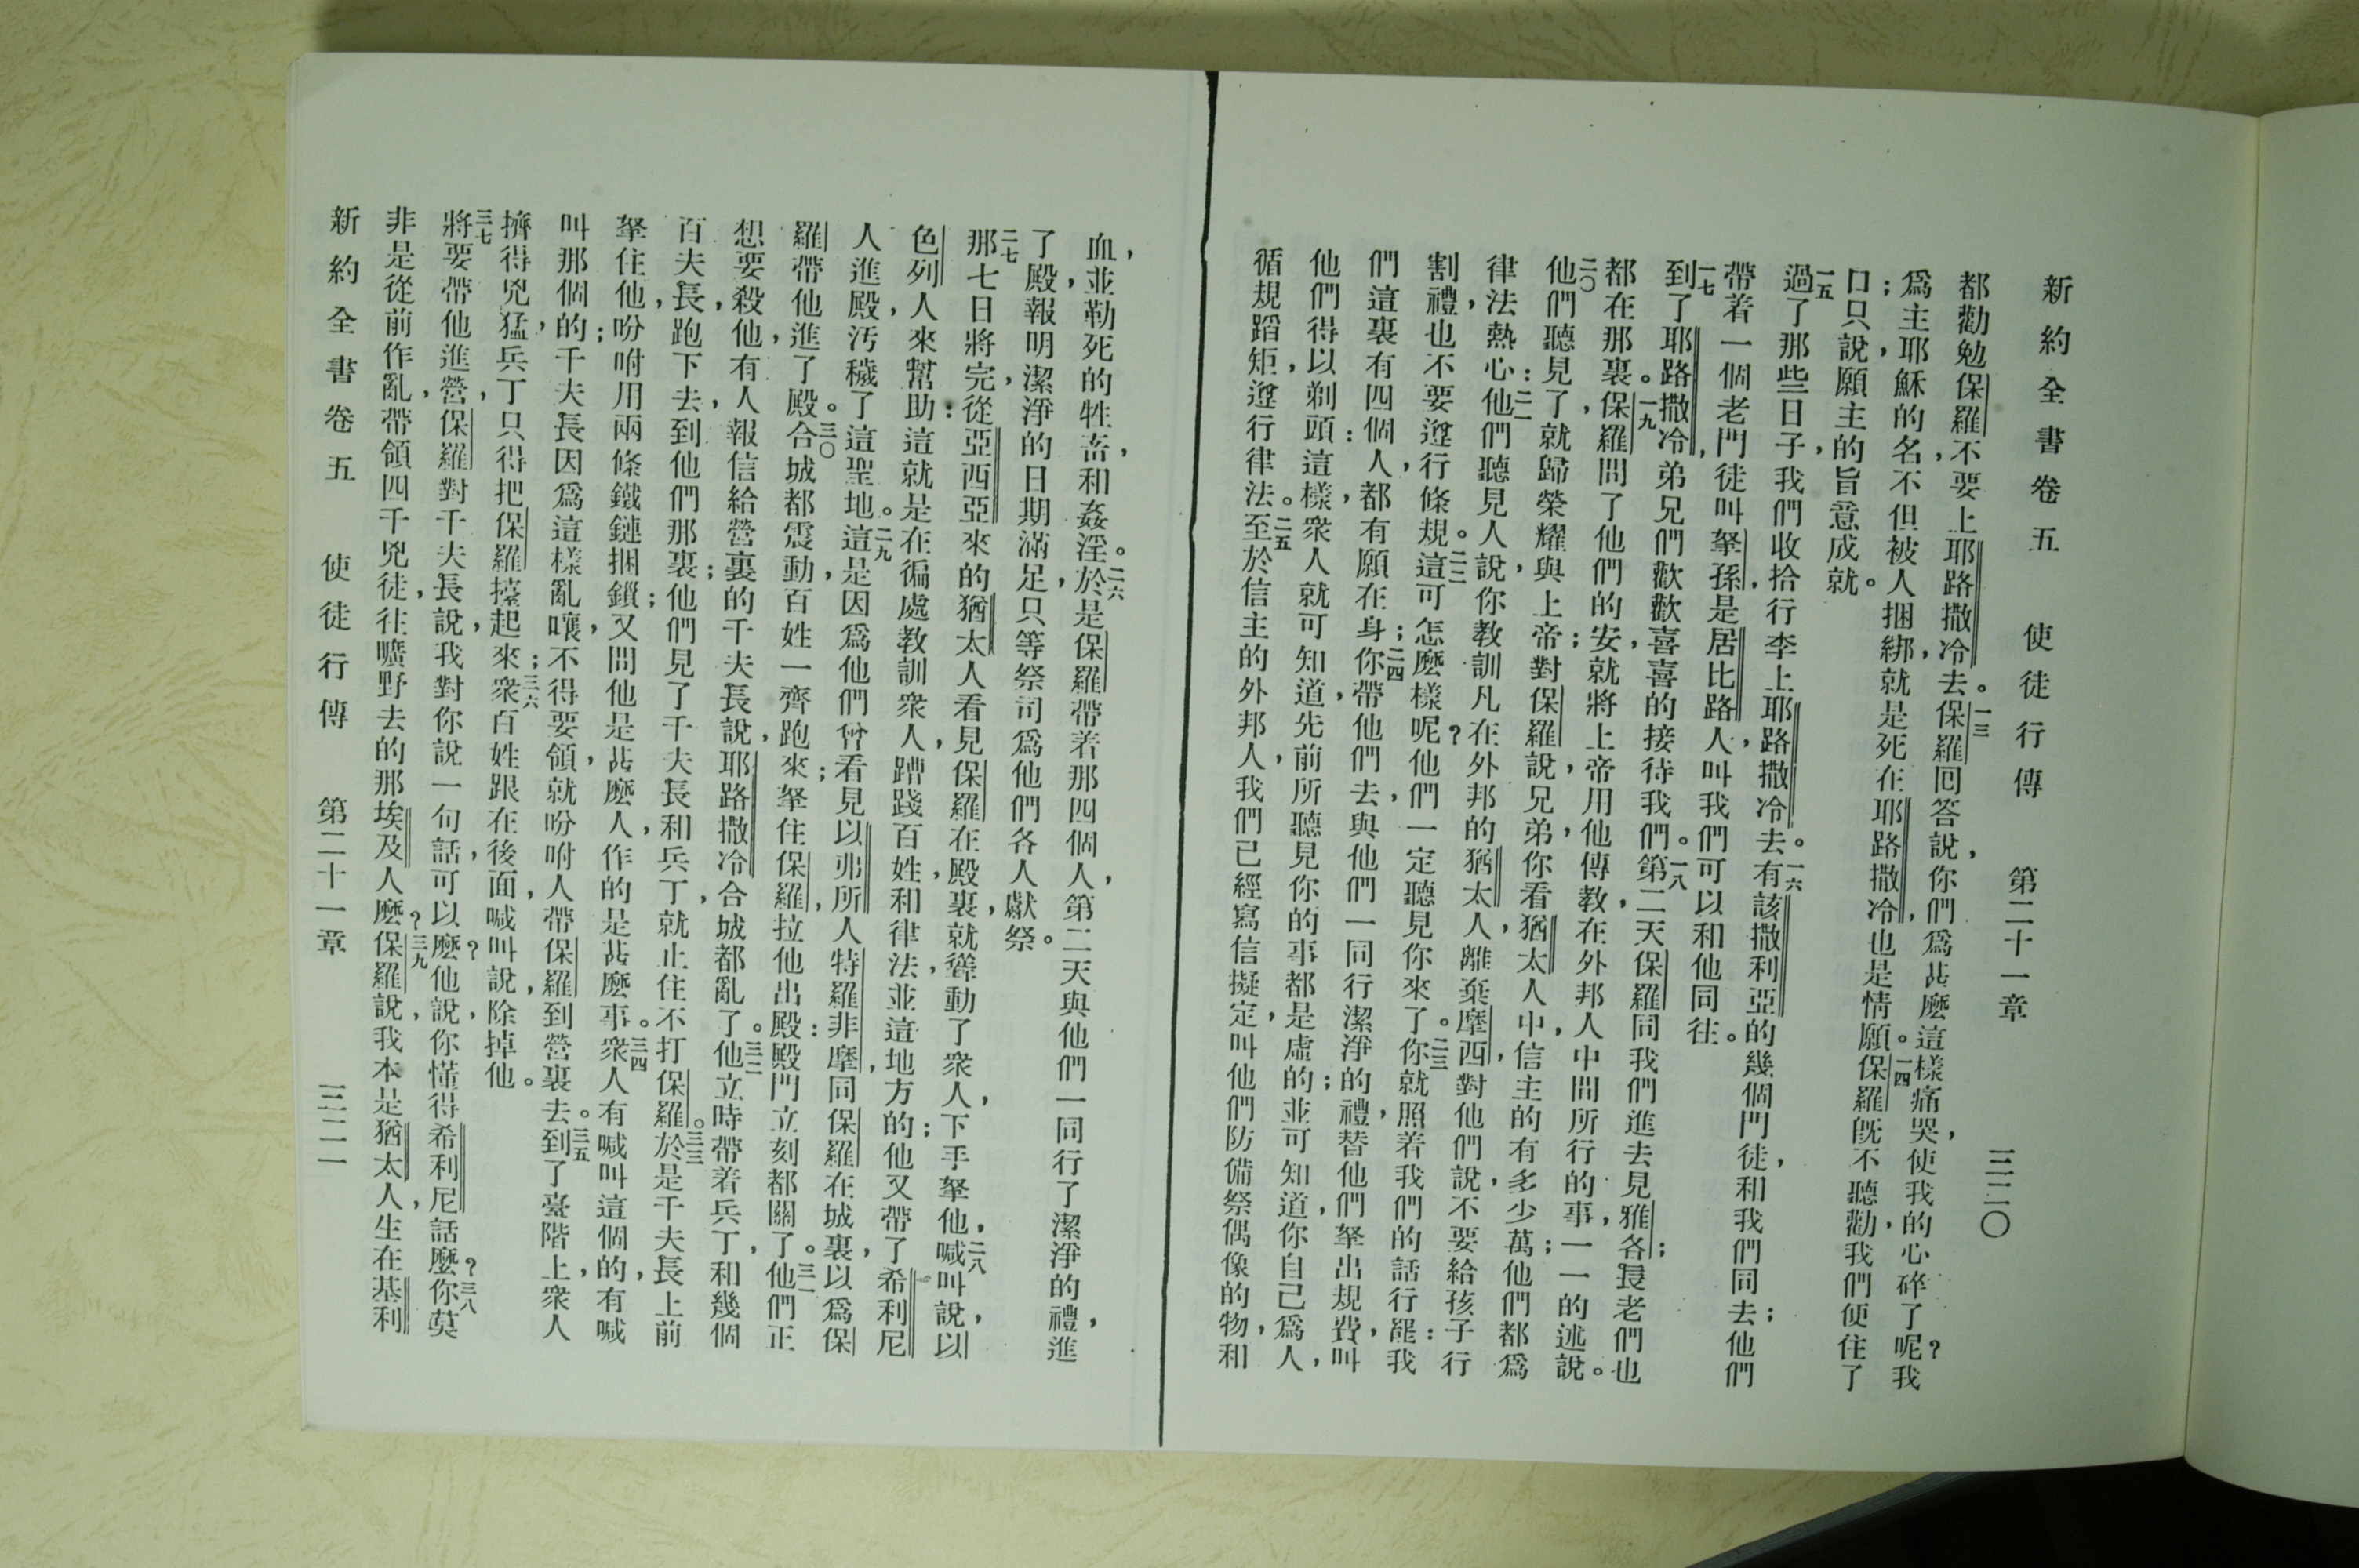 新約全書卷五 使徒行傳 第二十一章 三二〇
都勸勉保羅、不要上耶路撒冷去。一三保羅回答說、你們爲甚麼這樣痛哭、使我的心碎了呢?我
爲主耶穌的名、不但被人捆綁、就是死在耶路撒冷、也是情願。一四保羅旣不聽勸、我們便住了
口;只說、願主的旨意成就。
一五過了那些日子、我們收拾行李上耶路撒冷去。一六有該撒利亞的幾個門徒、和我們同去;他們
帶着一個老門徒叫拏孫、是居比路人、叫我們可以和他同往。
一七到了耶路撒冷、弟兄們歡歡喜喜的接待我們。一八第二天保羅同我們進去見雅各;長老們也
都在那裏。一九保羅問了他們的安、就將上帝用他傳教、在外邦人中間所行的事、一一的述說。
二〇他們聽見了、就歸榮耀與上帝;對保羅說、兄弟、你看猶太人中、信主的有多少萬;他們都爲
律法熱心:二一他們聽見人說、你教訓凡在外邦的猶太人、離棄摩西、對他們說、不要給孩子行
割禮、也不要遵行條規。二二這可怎麼樣呢?他們一定聽見你來了。二三你就照着我們的話行罷:我
們這裏有四個人、都有願在身;二四你帶他們去、與他們一同行潔淨的禮、替他們拏出規費、叫
他們得以剃頭:這樣、衆人就可知道、先前所聽見你的事都是虛的;並可知道、你自己爲人、
循規蹈矩、遵行律法。二五至於信主的外邦人、我們已經寫信擬定、叫他們防備祭偶像的物、和
血、並勒死的牲畜、和姦淫。二六於是保羅帶着那四個人、第二天與他們一同行了潔淨的禮、進
了殿、報明潔淨的日期滿足、只等祭司爲他們各人獻祭。
二七那七日將完、從亞西亞來的猶太人看見保羅在殿裏、就聳動了衆人、下手拏他、二八喊叫說、以
色列人來幫助:這就是在徧處教訓衆人、蹧踐百姓、和律法、並這地方的;他又帶了希利尼
人進殿、汚穢了這聖地。二九這是因爲他們曾看見以弗所人特羅非摩、同保羅在城裏、以爲保
羅帶他進了殿。三〇合城都震動、百姓一齊跑來;拏住保羅、拉他出殿:殿門立刻都關了。三一他們正
想要殺他、有人報信給營裏的千夫長說、耶路撒冷合城都亂了。三二他立時帶着兵丁、和幾個
百夫長、跑下去、到他們那裏;他們見了千夫長和兵丁、就止住不打保羅。三三於是千夫長上前
拏住他、吩咐用兩條鐵鏈捆鎖;又問他是甚麼人、作的是甚麼事。三四衆人有喊叫這個的、有喊
叫那個的;千夫長因爲這樣亂嚷、不得要領、就吩咐人帶保羅到營裏去。三五到了臺階上、衆人
擠得兇猛、兵丁只得把保羅擡起來;三六衆百姓跟在後面、喊叫說、除掉他。
三七將要帶他進營、保羅對千夫長說、我對你說一句話、可以麼?他說、你懂得希利尼話麼?三八你莫
非是從前作亂、帶領四千兇徒、往曠野去的那埃及人麼?三九保羅說、我本是猶太人、生在基利
新約全書卷五 使徒行傳 第二十一章 三二一